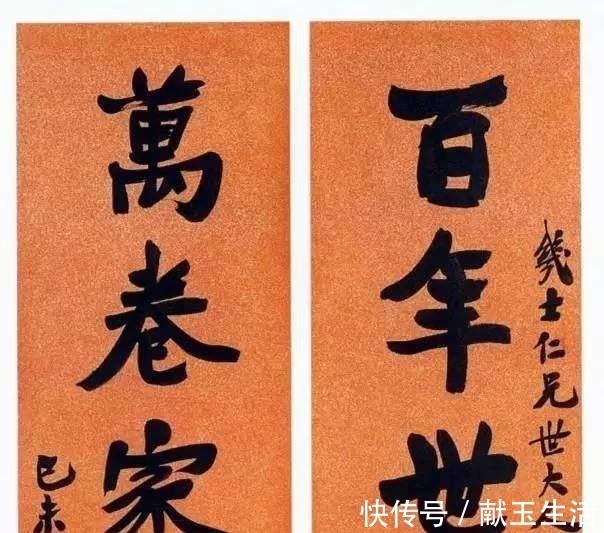 幾士仁兄世大
百年世
萬卷家
己未
快传号 / 献玉生活